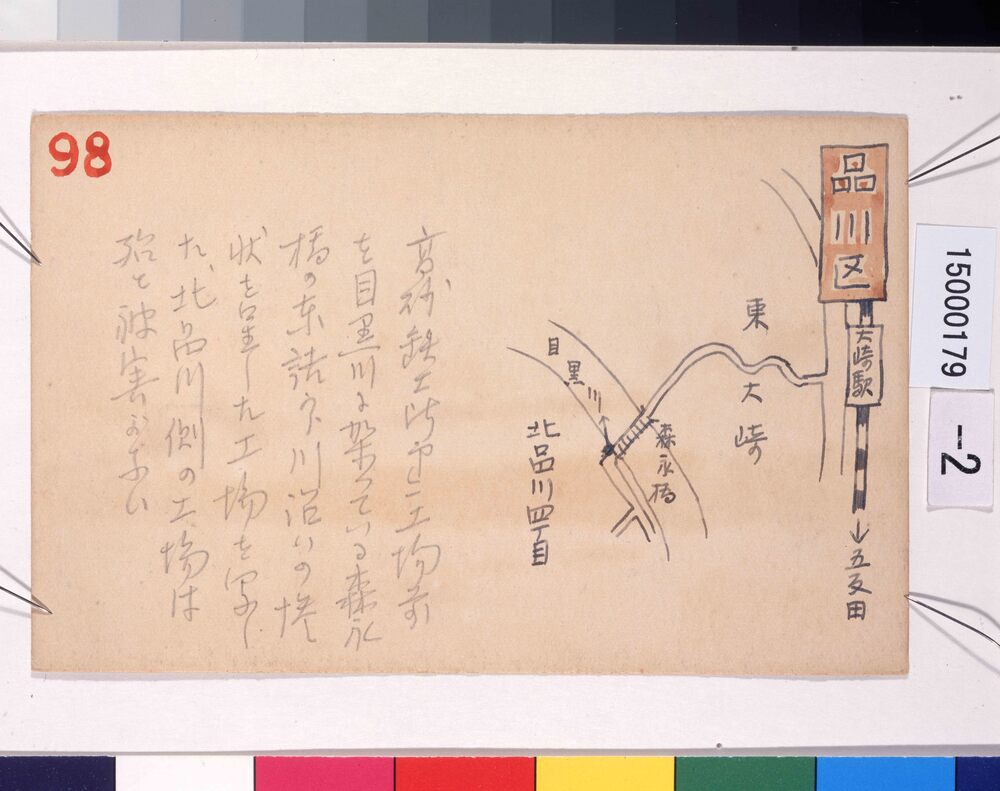 98
品川区
大崎駅
↓五反田
東大崎
目黒川
森永橋
北品川四丁目
高砂鉄工所中二工場前
を目黒川に架っている森永
橋の東詰から川沿いの
状を呈した工場を写し
た、北品川側の工場は
殆ど被害がない
15000179
-2